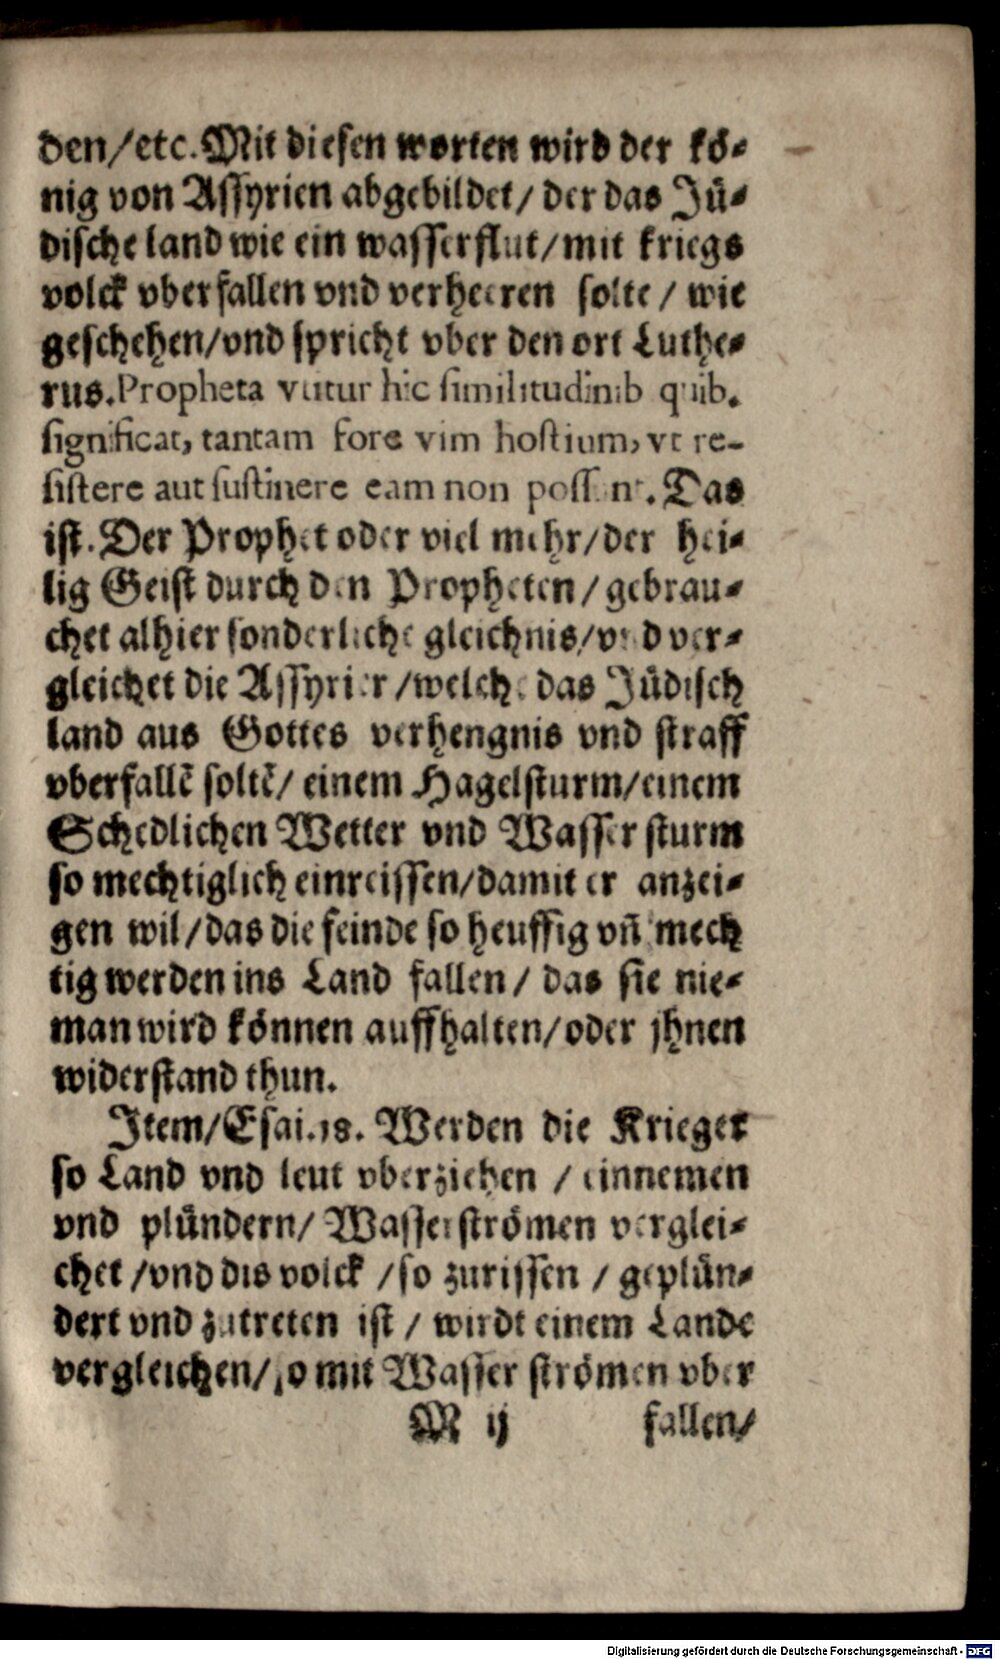 den/etc. Mit diesen worten wird der kö-
nig von Assyrien abgebildet/ der das Jü-
dische land wie ein wasserflut/mit kriegs
volck vberfallen vnd verheeren solte/ wie
geschehen/vnd spricht vber den ort Luthe-
rus. Propheta vtitur hic similitudinib quib.
significat, tantam fore vim hostium, vt re-
sistere aut sustinere eam non possint. Das
ist. Der Prophet oder viel mehr/der hei-
lig Geist durch den Propheten/gebrau-
chet alhier sonderliche gleichnis/vnd ver-
gleichet die Assyrier/welche das Jüdisch
land aus Gottes verhengnis vnd straff
vberfallē soltē/ einem Hagelsturm/einem
Schedlichen Wetter vnd Wasser sturm
so mechtiglich einreissen/damit er anzei-
gen wil/das die feinde so heuffig vñ mech
tig werden ins Land fallen/ das sie nie-
man wird können auffhalten/oder jhnen
widerstand thun.
Item/Esai.18. Werden die Krieger
so Land vnd leut vberziehen / einnemen
vnd plündern/ Wasserströmen verglei-
chet/vnd dis volck/so zurissen / geplün-
dert vnd zutreten ist / wirdt einem Lande
vergleichen/so mit Wasser strömen vber
M ij fallen/
Digitalisierung gefördert durch die Deutsche Forschungsgemeinschaft - DFG